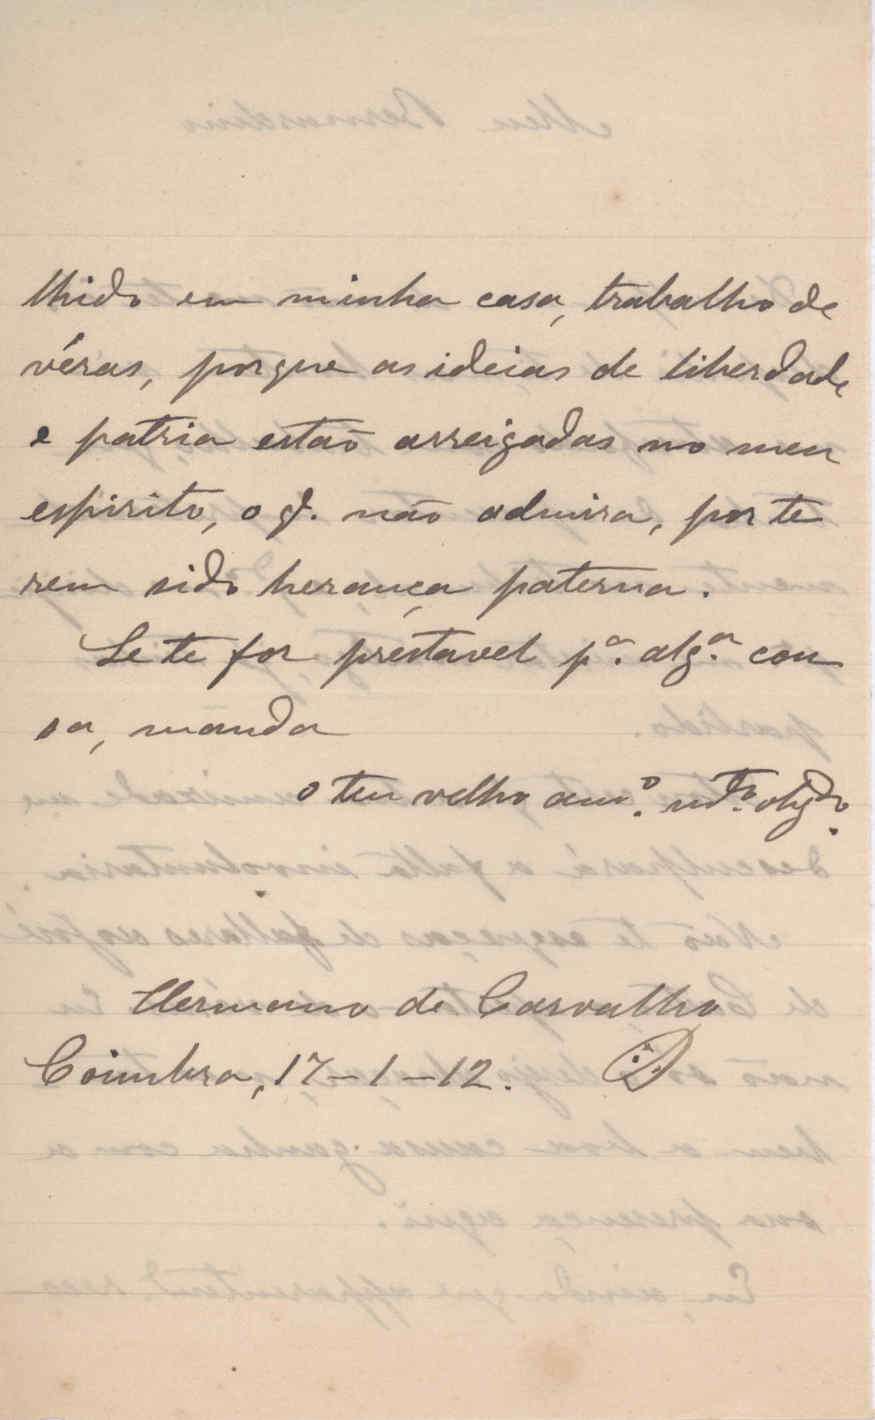 lhido em minha casa, trabalho de
véras, porque as ideias de liberdade
e patria estão arreigadas no meu
espirito, o q. não admira, por te
rem sido herança paterna.
Se te for préstavel pª. algª. cou
sa, manda
o teu velho amº. mtº. obgdº.
Hermano de Carvalho
Coimbra, 17-1-12.